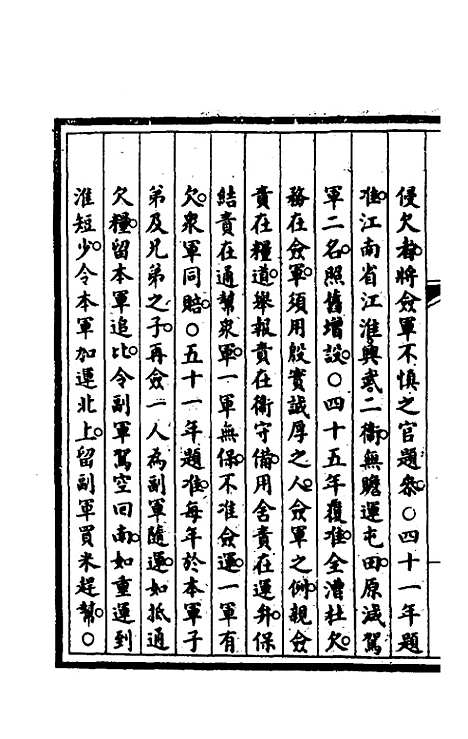 侵欠者將僉軍不慎之官題參○四十一年題
准江南省江淮興武二衛無贍運屯田原減駕
軍二名照舊增設○四十五年覆准全漕杜欠
務在僉軍須用殷實誠厚之人僉軍之例親僉
責在糧道舉報責在衛守備用舍責在運弁保
結責在通幫衆軍一軍無保不准僉運一軍有
欠衆軍同賠○五十一年題准每年於本軍子
弟及兄弟之子再僉一人為副軍隨運如抵通
欠糧留本軍追比令副軍駕空回南如重運到
淮短少令本軍加運北上留副軍買米趕幫○